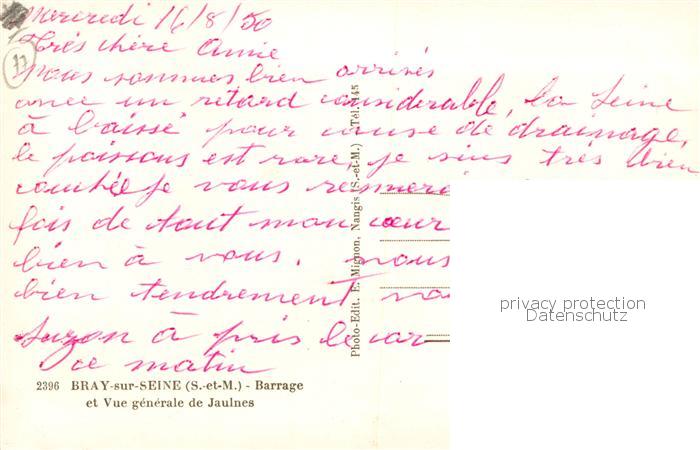 Mercredi 16/8/50
très chère Annie
11
nous sommes bien arrivés
avec un retard considerable, la Seine
à baissé pour cause de drainage,
le poissons est rare, je suis très bien
tombée Je vous remerci
fois de tout mon cœur
bien à vous. nous
bien tendrement
Suzon à pris le car
ce matin
2396 BRAY-sur-SEINE (S.-et-M.) - Barrage
et Vue générale de Jaulnes
Photo-Edit. E. Mignon, Nangis (S.-et-M.) Tél. 145
privacy protection
Datenschutz